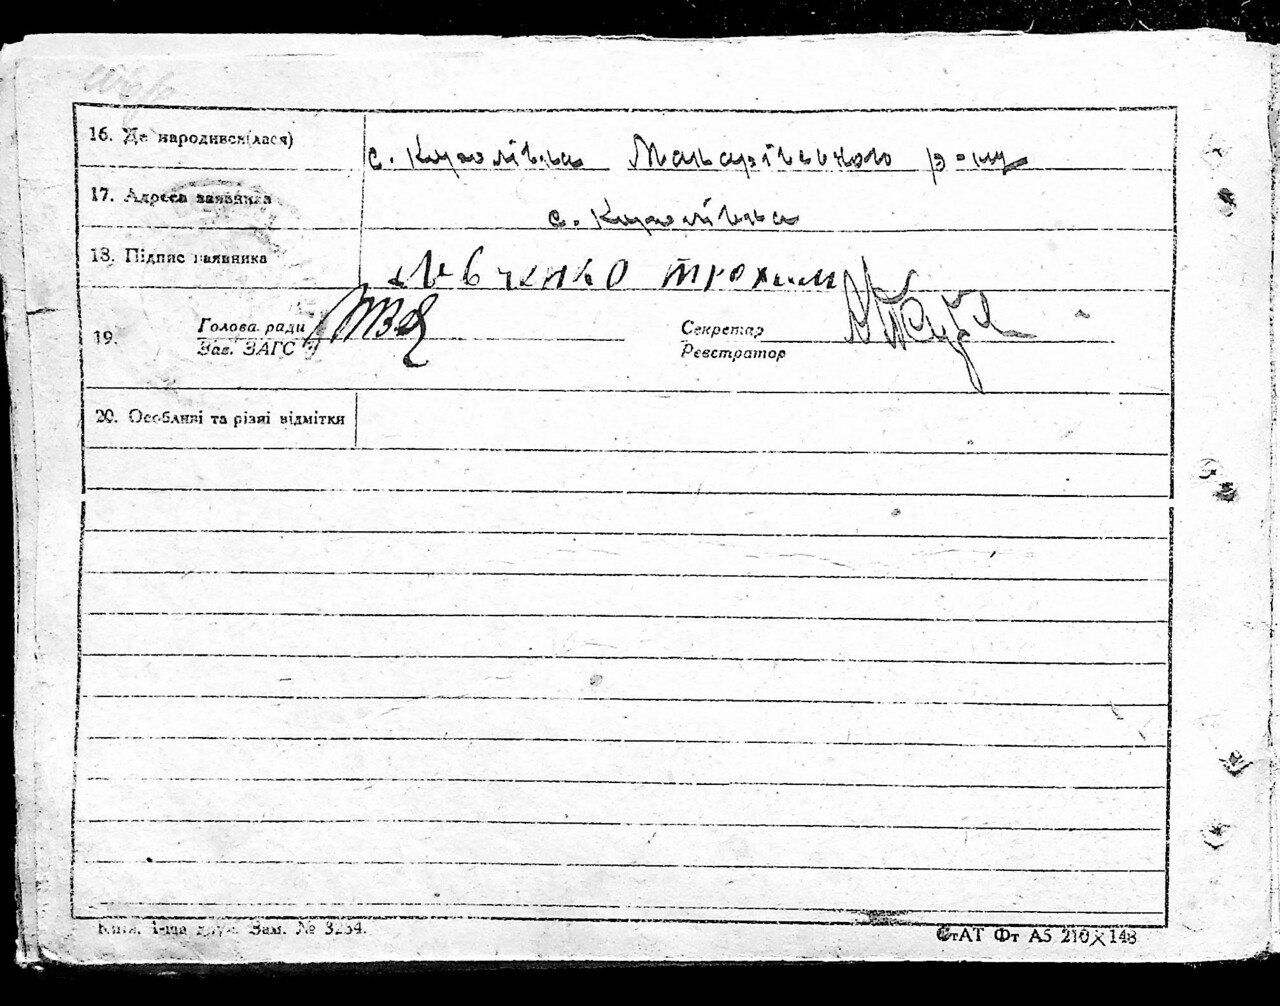 16. Де народився(лася) с. Королівка Макарівського р-ну
17. Адреса заявника с. Королівка
18. Підпис заявника Левченко Трохим
19. Голова ради Секретар
Заг. ЗАГС Реєстратор
20. Особливі та різні відмітки
Зам. № 3234.
СтАТ Фт А5 210×148